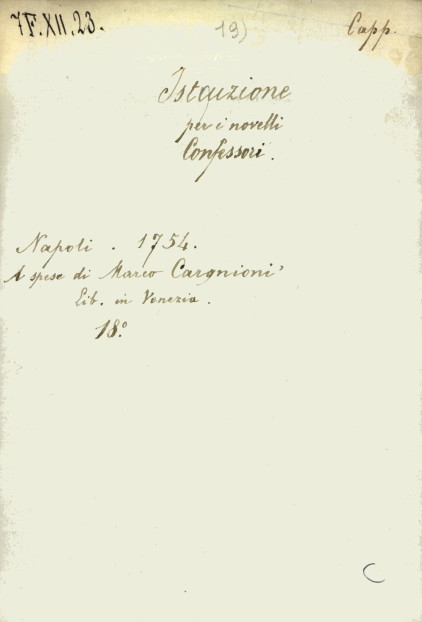 7F.XII.23.
19)
Capp.
Istruzione
per i novelli
Confessori.
Napoli . 1754.
A spese di Marco Cargnioni
Lib. in Venezia.
18.º